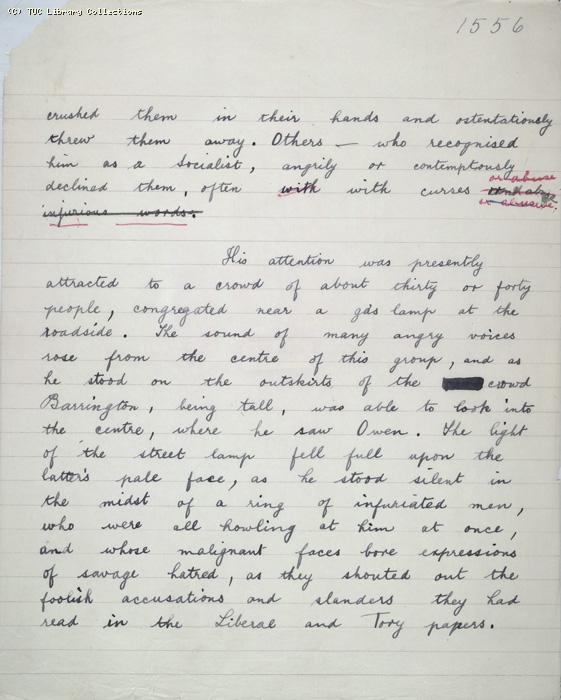 (C) TUC Library Collections
1556
crushed them in their hands and ostentatiously
threw them away. Others — who recognised
him as a Socialist, angrily or contemptously
declined them, often with with curses or abuse
or abusive.
injurious words.
His attention was presently
attracted to a crowd of about thirty or forty
people, congregated near a gas lamp at the
roadside. The sound of many angry voices
rose from the centre of this group, and as
he stood on the outskirts of the crowd
Barrington, being tall, was able to look into
the centre, where he saw Owen. The light
of the street lamp fell full upon the
latter's pale face, as he stood silent in
the midst of a ring of infuriated men,
who were all howling at him at once,
and whose malignant faces bore expressions
of savage hatred, as they shouted out the
foolish accusations and slanders they had
read in the Liberal and Tory papers.